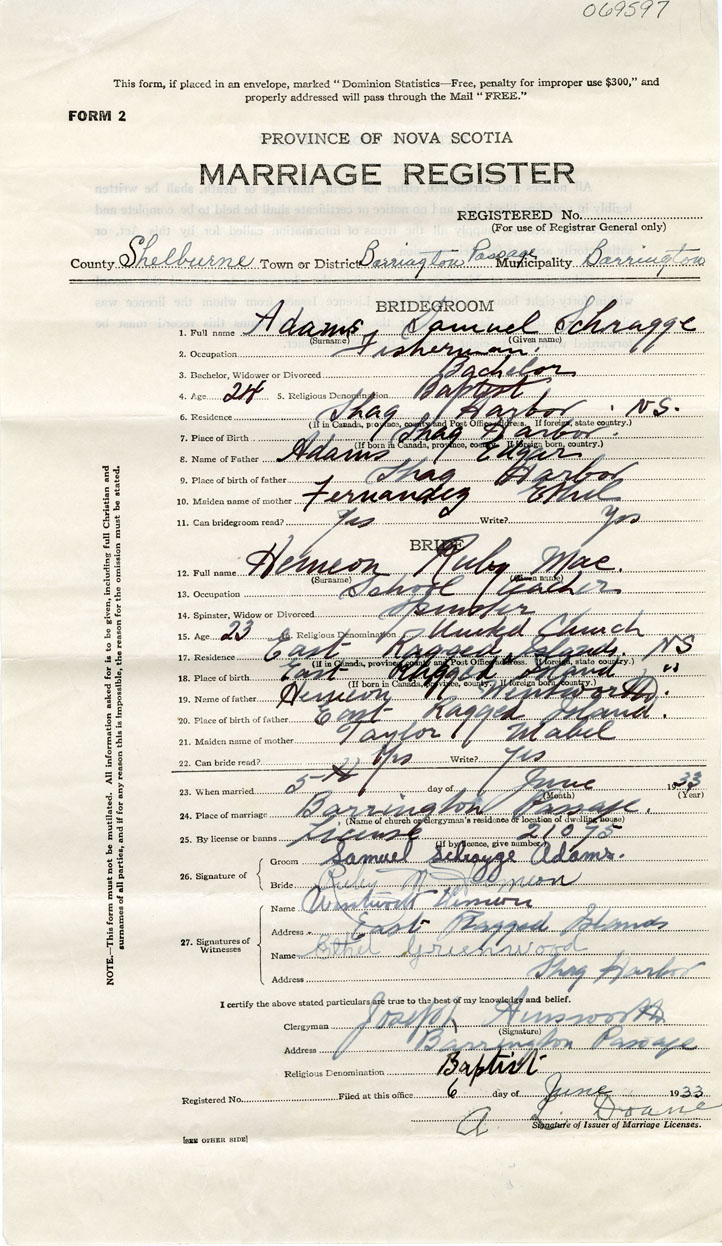 069597
This form, if placed in an envelope, marked "Dominion Statistics—Free, penalty for improper use $300," and
properly addressed will pass through the Mail "FREE."
FORM 2
PROVINCE OF NOVA SCOTIA
MARRIAGE REGISTER
REGISTERED No.
(For use of Registrar General only)
County Shelburne Town or District Barrington Passage Municipality Barrington
BRIDEGROOM
1. Full name Adams, Samuel Schragge
(Surname) (Given name)
2. Occupation Fisherman.
3. Bachelor, Widower or Divorced Bachelor
4. Age 24 5. Religious Denomination Baptist
6. Residence Shag Harbor. NS.
(If in Canada, province, county and Post Office address. If foreign, state country.)
7. Place of Birth Shag Harbor.
(If born in Canada, province, county. If foreign born, country.)
8. Name of Father Adams Edgar
9. Place of birth of father Shag Harbor
10. Maiden name of mother Fernandez Ethel
11. Can bridegroom read? Yes Write? Yes
BRIDE
12. Full name Hemeon Ruby Mae.
(Surname) (Given name)
13. Occupation School Teacher
14. Spinster, Widow or Divorced Spinster
15. Age 23 16. Religious Denomination United Church
17. Residence East Ragged Islands. NS
(If in Canada, province, county and Post Office address. If foreign, state country.)
18. Place of birth East Ragged Island. "
(If born in Canada, province, county. If foreign born, country.)
19. Name of father Hemeon Wentworth.
20. Place of birth of father East Ragged Island.
21. Maiden name of mother Taylor Mabel
22. Can bride read? Yes Write? Yes
23. When married 5th day of June 1933
(Month) (Year)
24. Place of marriage Barrington Passage.
(Name of church or clergyman's residence or location of dwelling house)
25. By license or banns License 21075
(If by licence, give number)
26. Signature of
Groom Samuel Schragge Adams.
Bride Ruby M Hemeon
27. Signatures of Witnesses
Name Wentworth Hemeon
Address East Ragged Islands
Name Ethel Greenwood
Address Shag Harbor
I certify the above stated particulars are true to the best of my knowledge and belief.
Clergyman Joseph Ainsworth
(Signature)
Address Barrington Passage
Religious Denomination Baptist
Registered No. Filed at this office 6 day of June 1933
A. L. Doane
Signature of Issuer of Marriage Licenses.
[SEE OTHER SIDE]
NOTE.—This form must not be mutilated. All information asked for is to be given, including full Christian and
surnames of all parties, and if for any reason this is impossible, the reason for the omission must be stated.